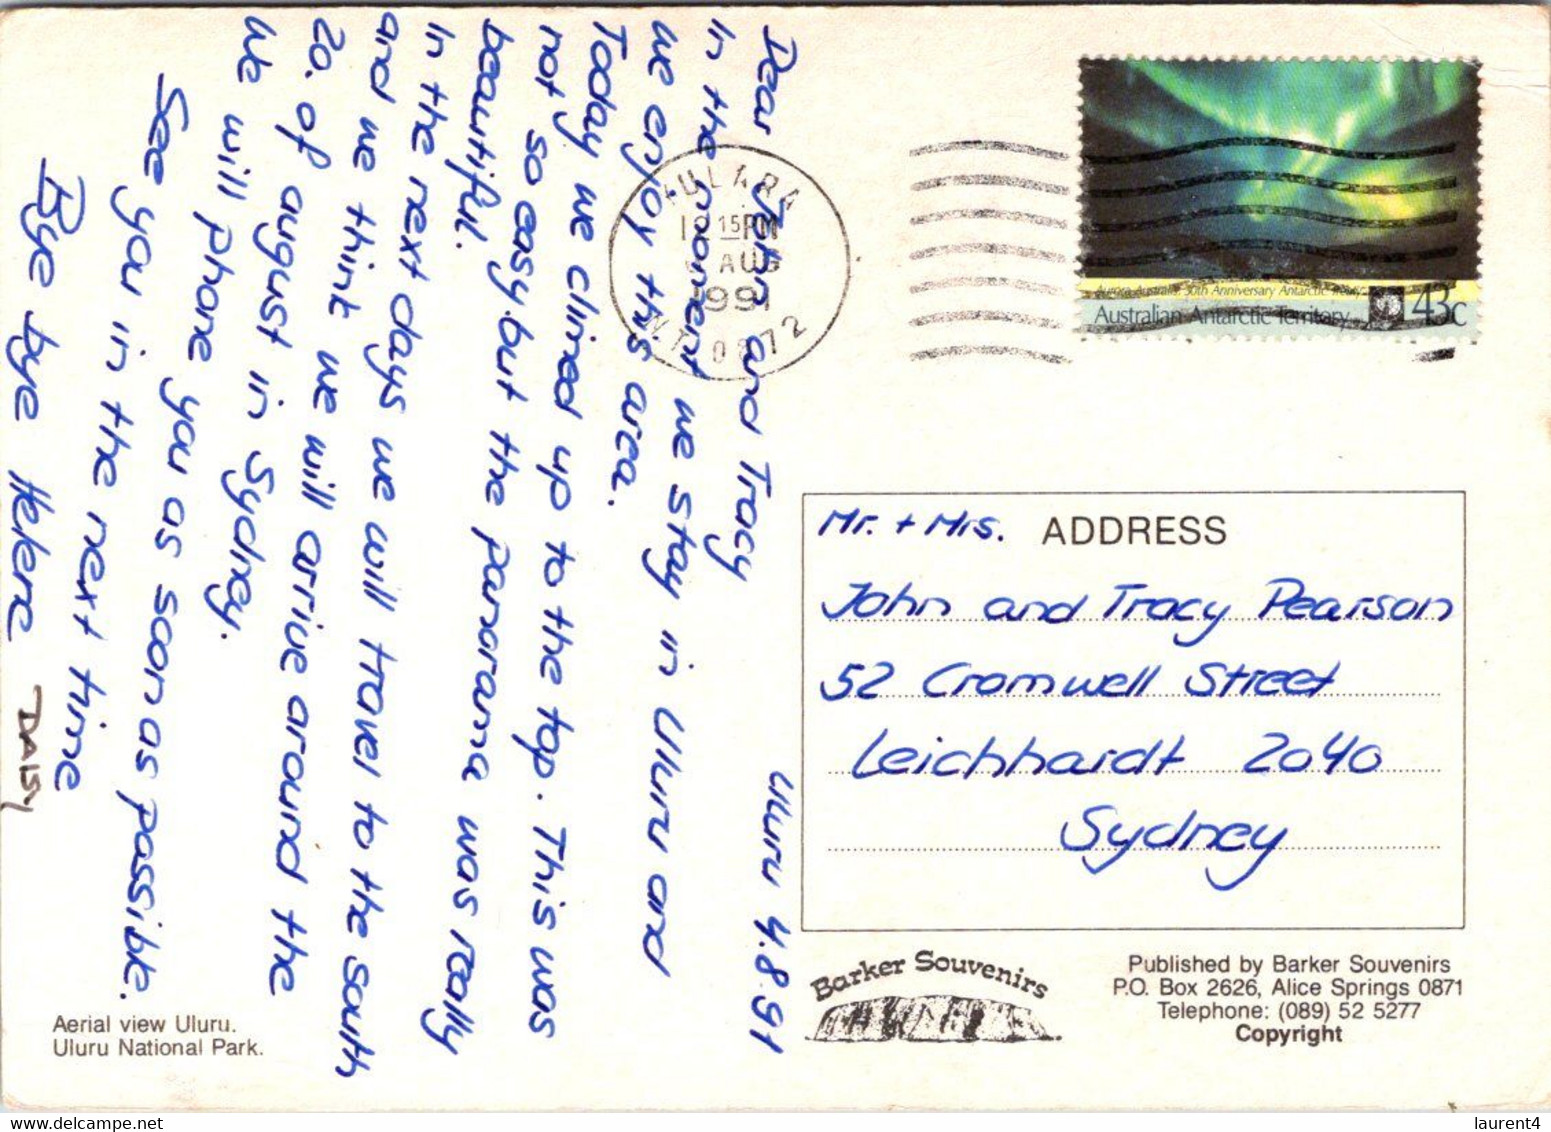 Uluru 4.8.91
Dear John and Tracy
In the moment we stay in Uluru and
we enjoy this area.
Today we climed up to the top. This was
not so easy but the panorama was really
beautiful.
In the next days we will travel to the south
and we think we will arrive around the
20. of august in Sydney.
We will phone you as soon as passible.
See you in the next time
Bye bye Helene
DAISY
AULARA
15 PM
AUG
1991
N.T. 0872
Aurora Australis 30th Anniversary Antarctic Treaty
Australian Antarctic Territory 43c
Mr. + Mrs. ADDRESS
John and Tracy Pearson
52 Cromwell Street
Leichhardt 2040
Sydney
Barker Souvenirs
Published by Barker Souvenirs
P.O. Box 2626, Alice Springs 0871
Telephone: (089) 52 5277
Copyright
Aerial view Uluru.
Uluru National Park.
laurent4